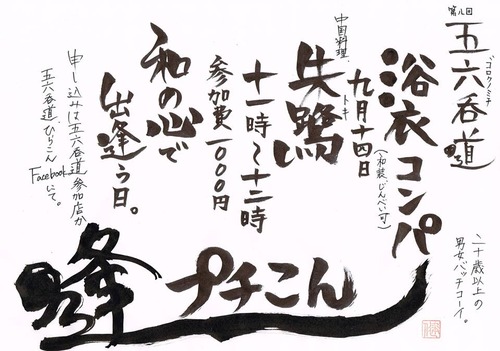 第八回
五六呑道
ゴロクノミチ
浴衣コンパ
(和装、じんべい可)
九月十四日
中国料理
朱鷺
トキ
十一時〜十二時
参加費一〇〇〇円
和の心で
出逢う日。
申し込みは五六呑道参加店か
五六呑道ひらこん
Facebookにて。
二十歳以上の
男女バッチコーイ。
逢
プチこん